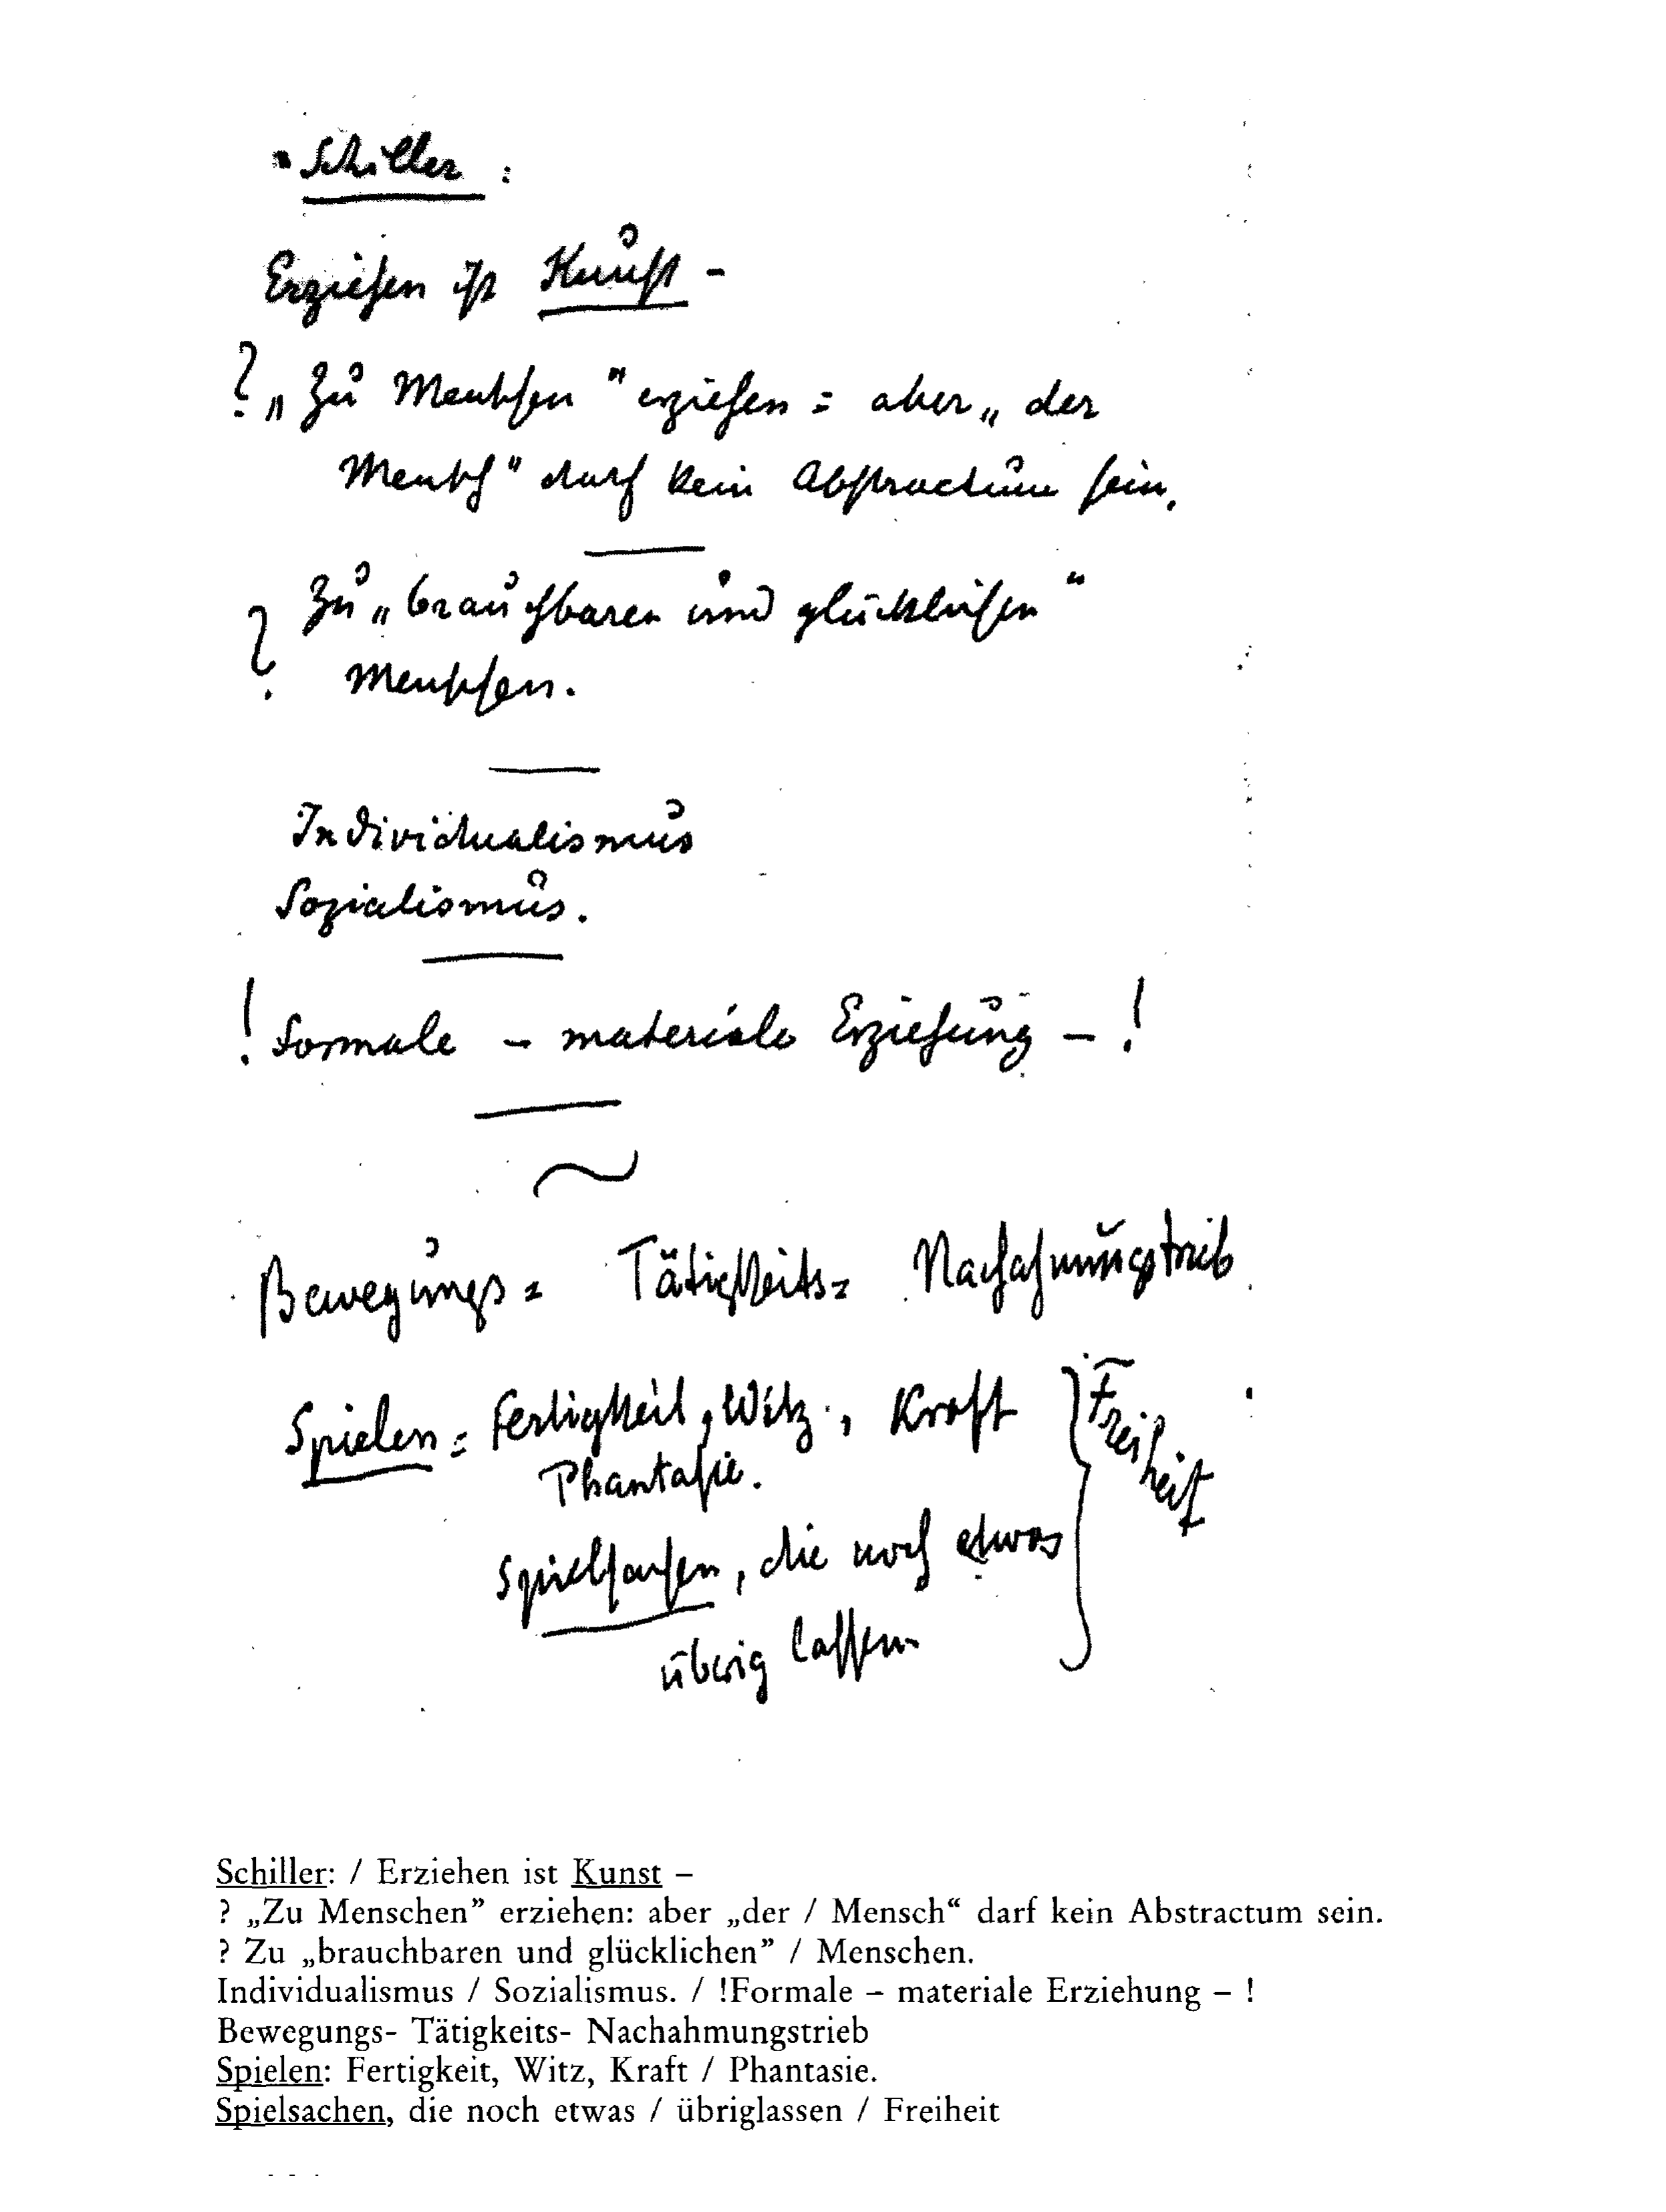 Schiller :
Erziehen ist Kunst -
? „Zu Menschen" erziehen : aber „der
Mensch" darf kein Abstractum sein.
Zu „brauchbaren und glücklichen"
? Menschen.
Individualismus
Sozialismus.
! Formale – materiale Erziehung – !
Bewegungs= Tätigkeits= Nachahmungstrieb
Spielen : Fertigkeit, Witz, Kraft
Phantasie.
Spielsachen, die noch etwas
übrig lassen
Freiheit
Schiller: / Erziehen ist Kunst –
? „Zu Menschen” erziehen: aber „der / Mensch“ darf kein Abstractum sein.
? Zu „brauchbaren und glücklichen” / Menschen.
Individualismus / Sozialismus. / !Formale – materiale Erziehung – !
Bewegungs- Tätigkeits- Nachahmungstrieb
Spielen: Fertigkeit, Witz, Kraft / Phantasie.
Spielsachen, die noch etwas / übriglassen / Freiheit